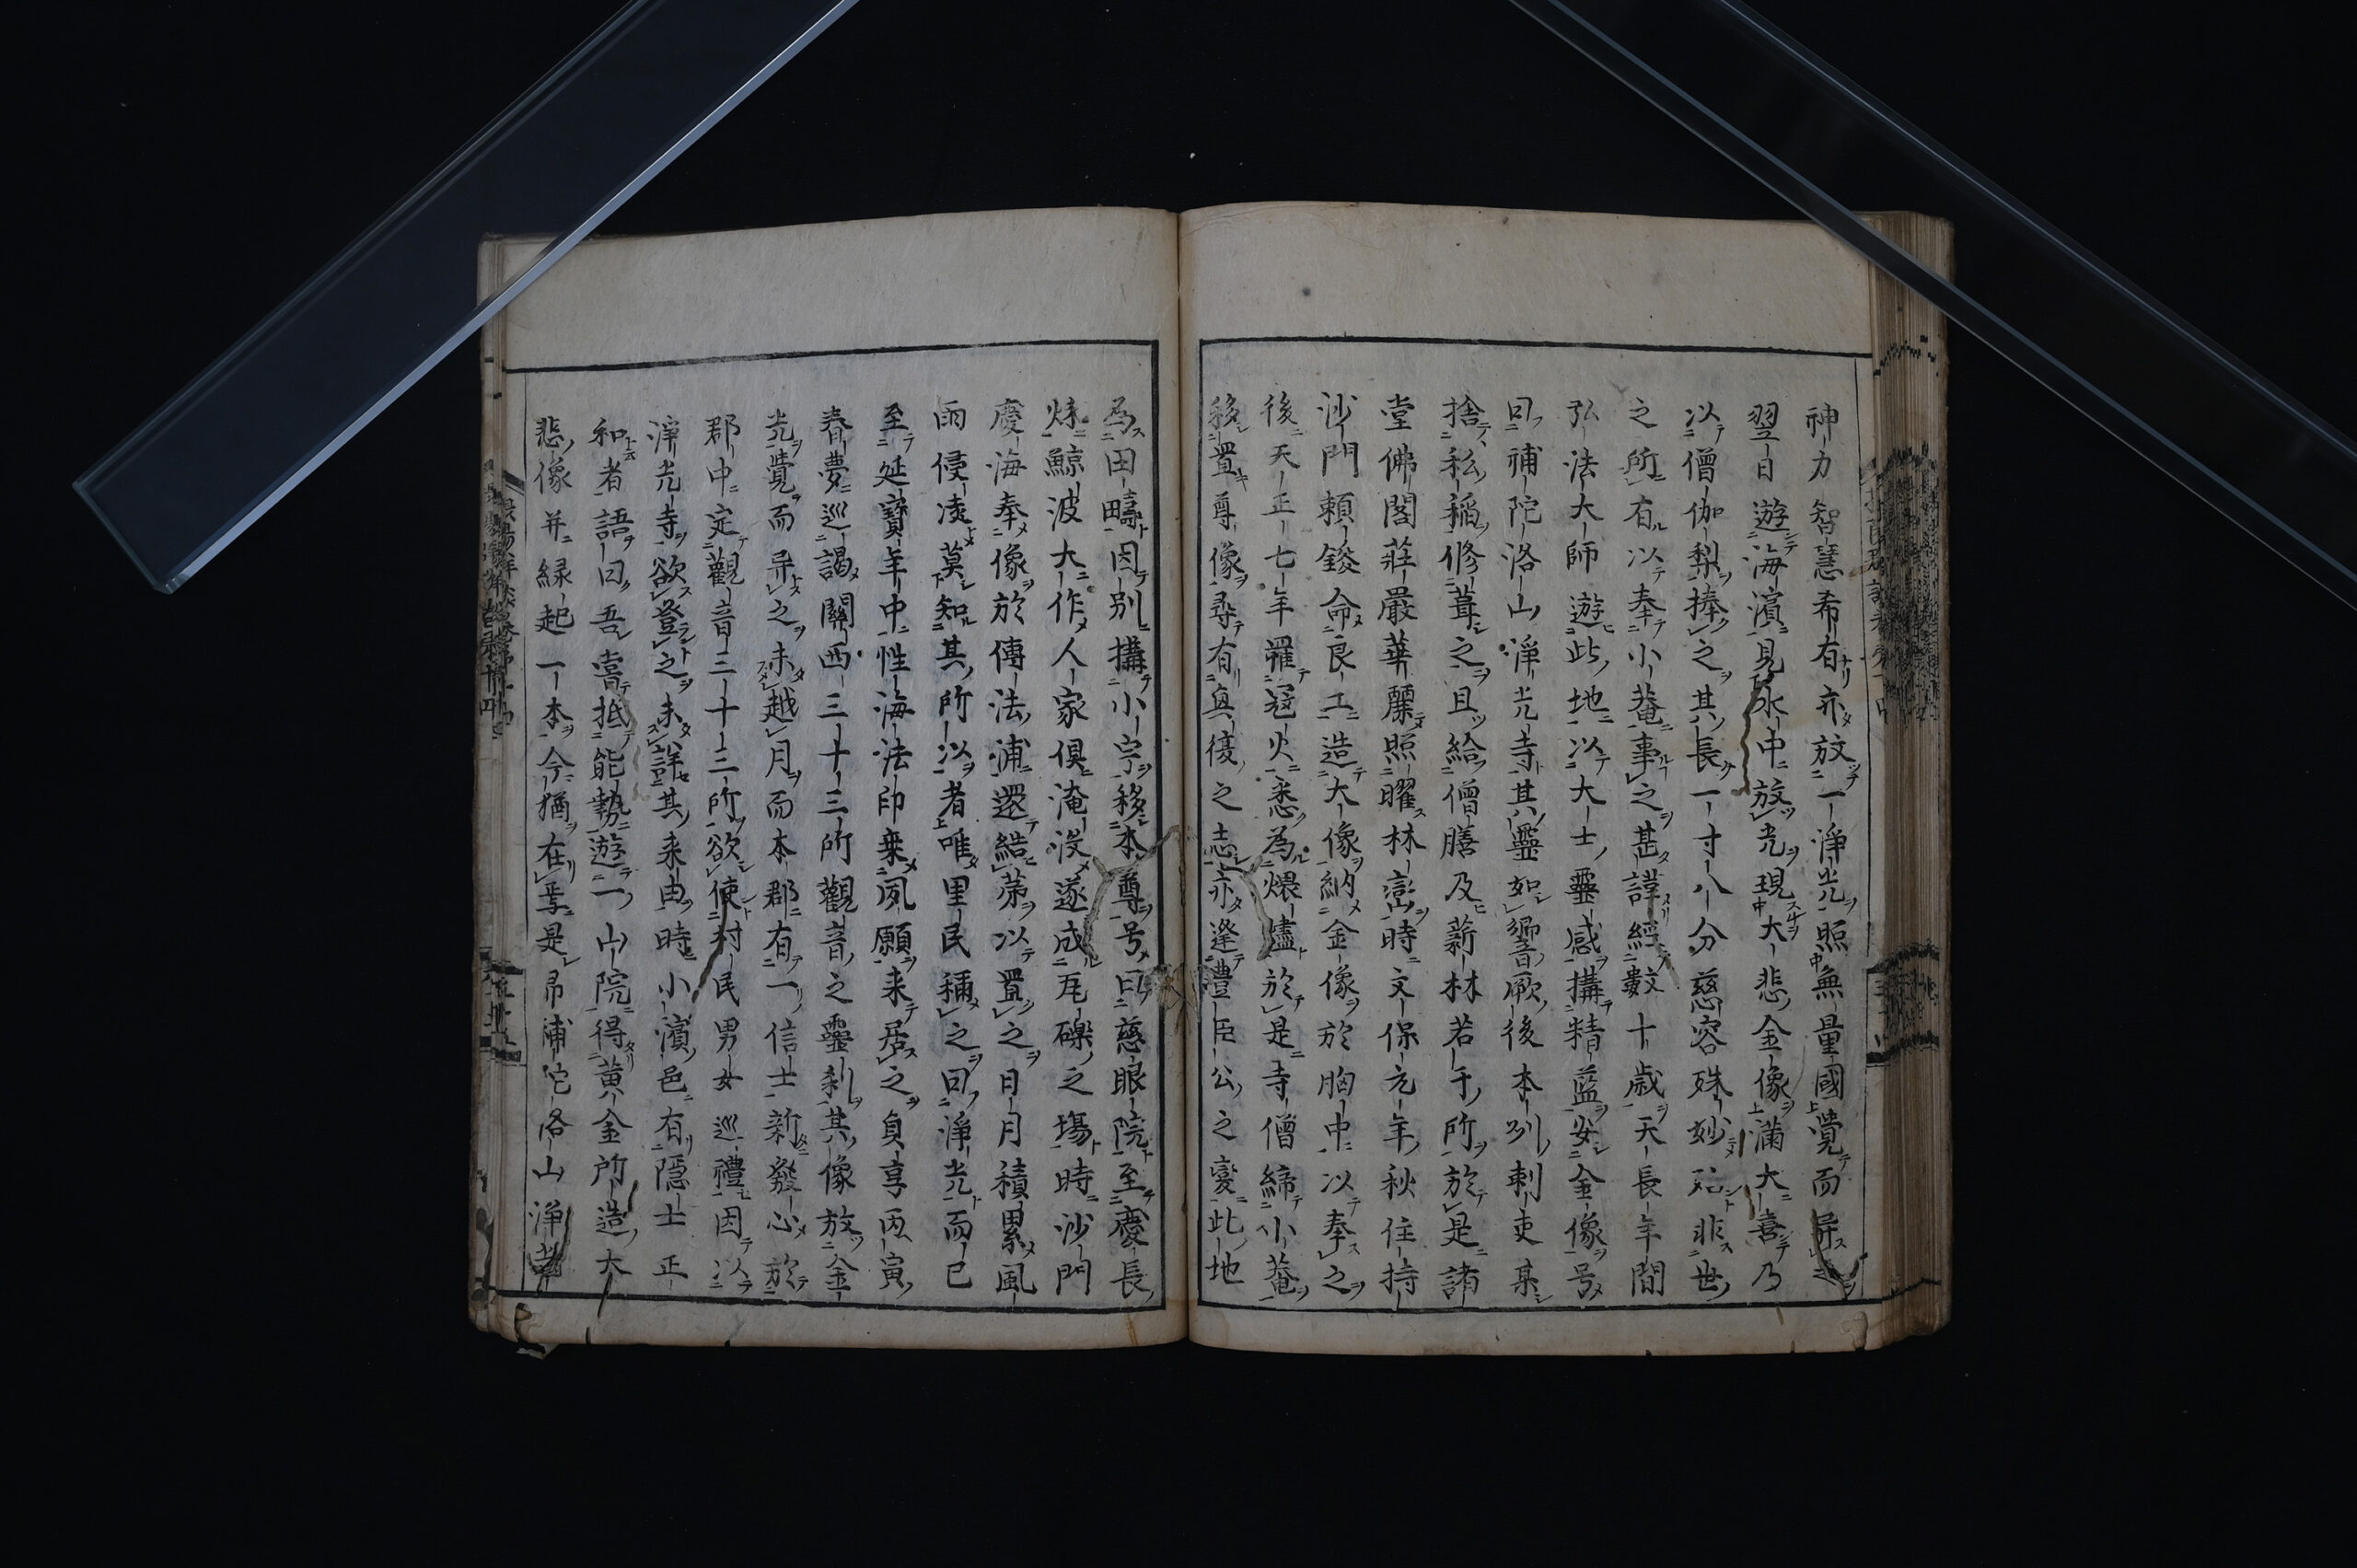 神力智慧希有亦放一淨光照無量國覺而異之
翌日遊海濱見水中放光現大悲金像滿大喜乃
以僧伽梨捧之其長一寸八分慈容殊妙殆非世
之所有以奉小菴事之甚謹經數十歲天長年間
弘法大師遊此地以大士靈感搆精藍安金像号
曰補陀洛山淨光寺其靈如響厥後本州刺吏某
捨私稲修葺之且給僧膳及薪林若干所於是諸
堂佛閣莊嚴華麗照曜林巒時文保元年秋住持
沙門賴鍐命良工造大像納金像於胸中以奉之
後天正七年罹冦火悉為煨燼於是寺僧締小菴
移置尊像尋有興復之志亦逢豊臣公之変此地
為田疇因別搆小宇移本尊号曰慈眼院至慶長
煉鯨波大作人家俱淹没遂成瓦礫之塲時沙門
慶海奉像於傳法浦還結茅以置之日月積累風
雨侵凌莫知其所以者唯里民稱之曰淨光而已
至延寶年中性海法印乗夙願来居之貞享丙寅
春夢巡謁關西三十三所觀音之靈刹其像放金
光覺而异之未越月而本郡有一信士新發心於
郡中定觀音三十三所欲使村民男女巡禮因以
淨光寺欲登之未詳其来由時小濱邑有隠士正
和者語曰吾嘗抵能勢遊一山院得黄金所造大
悲像并縁起一本今猶在焉是帛補陀洛山淨光